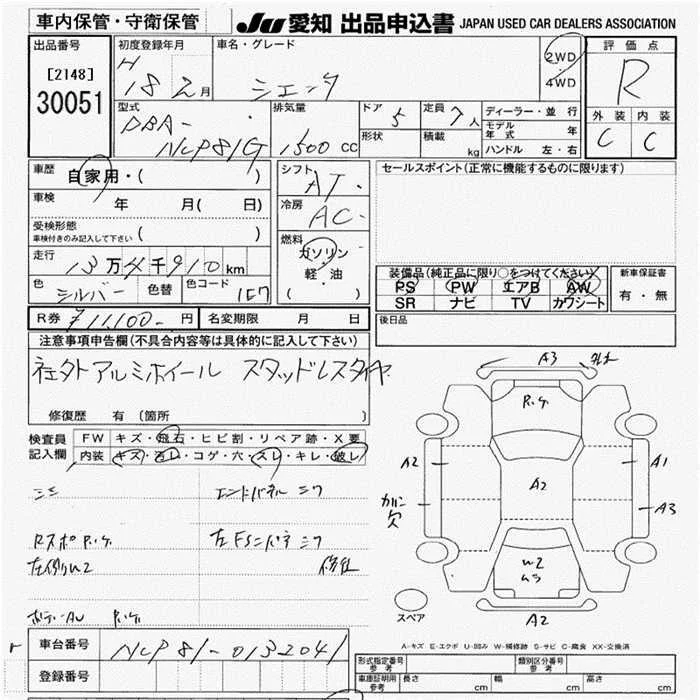 車内保管・守衛保管 JU 愛知 出品申込書 JAPAN USED CAR DEALERS ASSOCIATION
出品番号 初度登録年月 車名・グレード 2WD 4WD 評価点
[2148] H 18 2月 シエンタ R
30051 型式 排気量 ドア 5 定員 7人 ディーラー・並行 外装 内装
DBA- 形状 積載 kg モデル年式 年 C C
NCP81G 1500 cc ハンドル 左・右
車歴 自家用・( ) シフト AT セールスポイント(正常に機能するものに限ります)
車検 年 月( 日) 冷房 AC
受検形態 ( )
車検付きのみ記入して下さい
燃料 ガソリン
走行 13万4千910km 軽・油
( )
装備品(純正品に限り○をつけてください) 新車保証書
PS PW エアB AW 有・無
SR ナビ TV カワシート
色 シルバー 色替 色コード 1E7
R券 ¥11,100- 円 名変期限 月 日 後日品
注意事項申告欄(不具合内容等は具体的に記入して下さい)
社外アルミホイール スタッドレスタイヤ
修復歴 有(箇所 )
検査員記入欄 FW キズ・飛石・ヒビ割・リペア跡・X要
内装 キズ・汚レ・コゲ・穴・スレ・キレ・破レ
エンドパネル シワ
修仕
A3
A2 A2 A1
A3
W2
A2
スペア
A-キズ E-エクボ U-凹み W-補修跡 S-サビ C-腐食 XX-交換済
車台番号 NCP81-0132041
登録番号
形式指定番号 参考 類別区分番号 参考
車庫証明用 参考 長さ cm 幅 cm 高さ cm